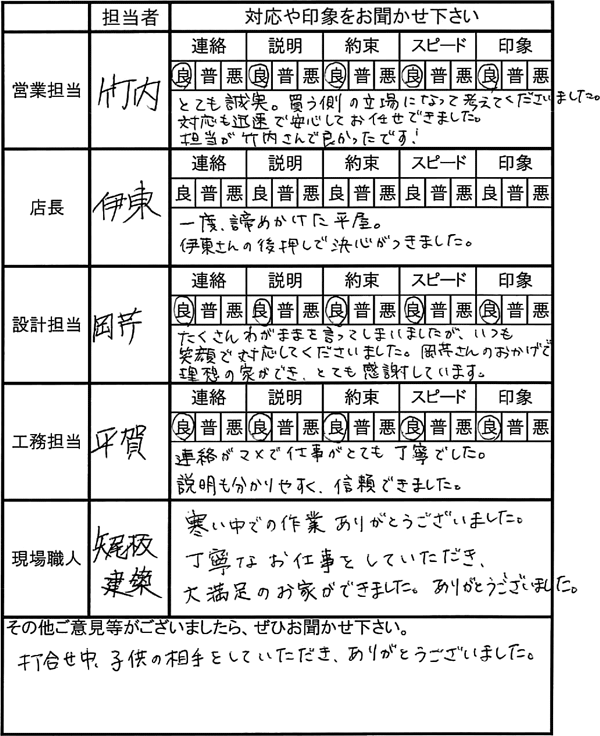 担当者 対応や印象をお聞かせ下さい
営業担当 竹内
連絡 説明 約束 スピード 印象
良 普 悪 良 普 悪 良 普 悪 良 普 悪 良 普 悪
とても誠実。買う側の立場になって考えてくださいました。
対応も迅速で安心してお任せできました。
担当が竹内さんで良かったです!
店長 伊東
連絡 説明 約束 スピード 印象
良 普 悪 良 普 悪 良 普 悪 良 普 悪 良 普 悪
一度、諦めかけた平屋。
伊東さんの後押しで決心がつきました。
設計担当 岡芹
連絡 説明 約束 スピード 印象
良 普 悪 良 普 悪 良 普 悪 良 普 悪 良 普 悪
たくさんわがままを言ってしまいましたが、いつも
笑顔で対応してくださいました。岡芹さんのおかげで
理想の家ができ、とても感謝しています。
工務担当 平賀
連絡 説明 約束 スピード 印象
良 普 悪 良 普 悪 良 普 悪 良 普 悪 良 普 悪
連絡がマメで仕事がとても丁寧でした。
説明も分かりやすく、信頼できました。
現場職人 尾板
建築
寒い中での作業ありがとうございました。
丁寧なお仕事をしていただき、
大満足のお家ができました。ありがとうございました。
その他ご意見等がございましたら、ぜひお聞かせ下さい。
打合せ中、子供の相手をしていただき、ありがとうございました。